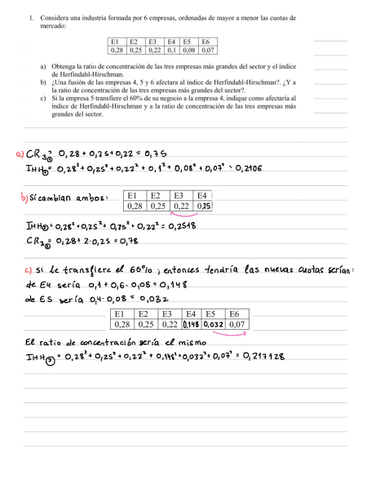 1. Considera una industria formada por 6 empresas, ordenadas de mayor a menor las cuotas de
mercado:
E1 E2 E3 E4 E5 E6
0,28 0,25 0,22 0,1 0,08 0,07
a) Obtenga la ratio de concentración de las tres empresas más grandes del sector y el índice
de Herfindahl-Hirschman.
b) ¿Una fusión de las empresas 4, 5 y 6 afectara al índice de Herfindahl-Hirschman?. ¿Y a
la ratio de concentración de las tres empresas más grandes del sector?.
c) Si la empresa 5 transfiere el 60% de su negocio a la empresa 4, indique como afectaría al
índice de Herfindahl-Hirschman y a la ratio de concentración de las tres empresas más
grandes del sector.
a) CR3① = 0,28 + 0,25 + 0,22 = 0,75
IHH① = 0,28² + 0,25² + 0,22² + 0,1² + 0,08² + 0,07² = 0,2106
b) Sí cambian ambos:
E1 E2 E3 E4
0,28 0,25 0,22 0,25
IHH② = 0,28² + 0,25² + 0,25² + 0,22² = 0,2518
CR3② = 0,28 + 2·0,25 = 0,78
c) Si le transfiere el 60%, entonces tendría las nuevas cuotas serían:
de E4 sería 0,1 + 0,6 · 0,08 = 0,148
de E5 sería 0,4 · 0,08 = 0,032
E1 E2 E3 E4 E5 E6
0,28 0,25 0,22 0,148 0,032 0,07
El ratio de concentración sería el mismo
IHH③ = 0,28² + 0,25² + 0,22² + 0,148² + 0,032² + 0,07² = 0,217128